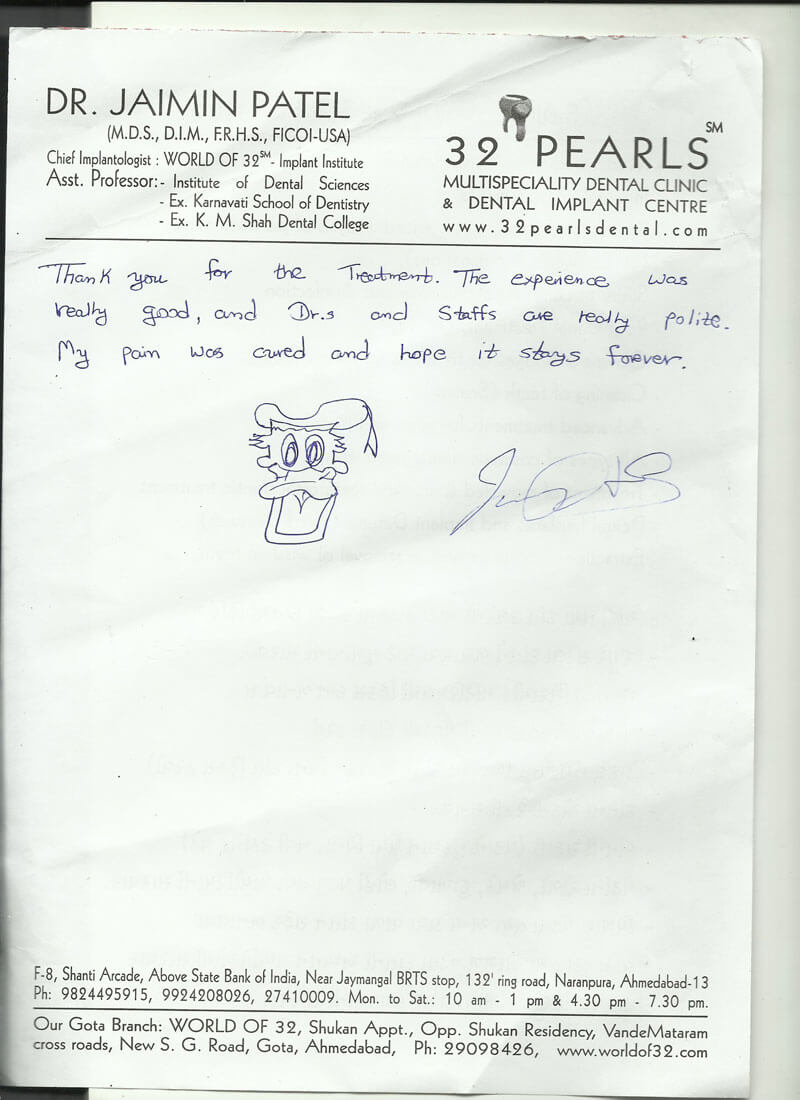 DR. JAIMIN PATEL
(M.D.S., D.I.M., F.R.H.S., FICOI-USA)
Chief Implantologist : WORLD OF 32SM- Implant Institute
Asst. Professor:- Institute of Dental Sciences
- Ex. Karnavati School of Dentistry
- Ex. K. M. Shah Dental College
32 PEARLS SM
MULTISPECIALITY DENTAL CLINIC
& DENTAL IMPLANT CENTRE
www.32pearlsdental.com
Thank you for the Treatment. The experience was
really good, and Dr.s and Staffs are really polite.
My pain was cured and hope it stays forever.
F-8, Shanti Arcade, Above State Bank of India, Near Jaymangal BRTS stop, 132' ring road, Naranpura, Ahmedabad-13
Ph: 9824495915, 9924208026, 27410009. Mon. to Sat.: 10 am - 1 pm & 4.30 pm - 7.30 pm.
Our Gota Branch: WORLD OF 32, Shukan Appt., Opp. Shukan Residency, VandeMataram
cross roads, New S. G. Road, Gota, Ahmedabad, Ph: 29098426, www.worldof32.com